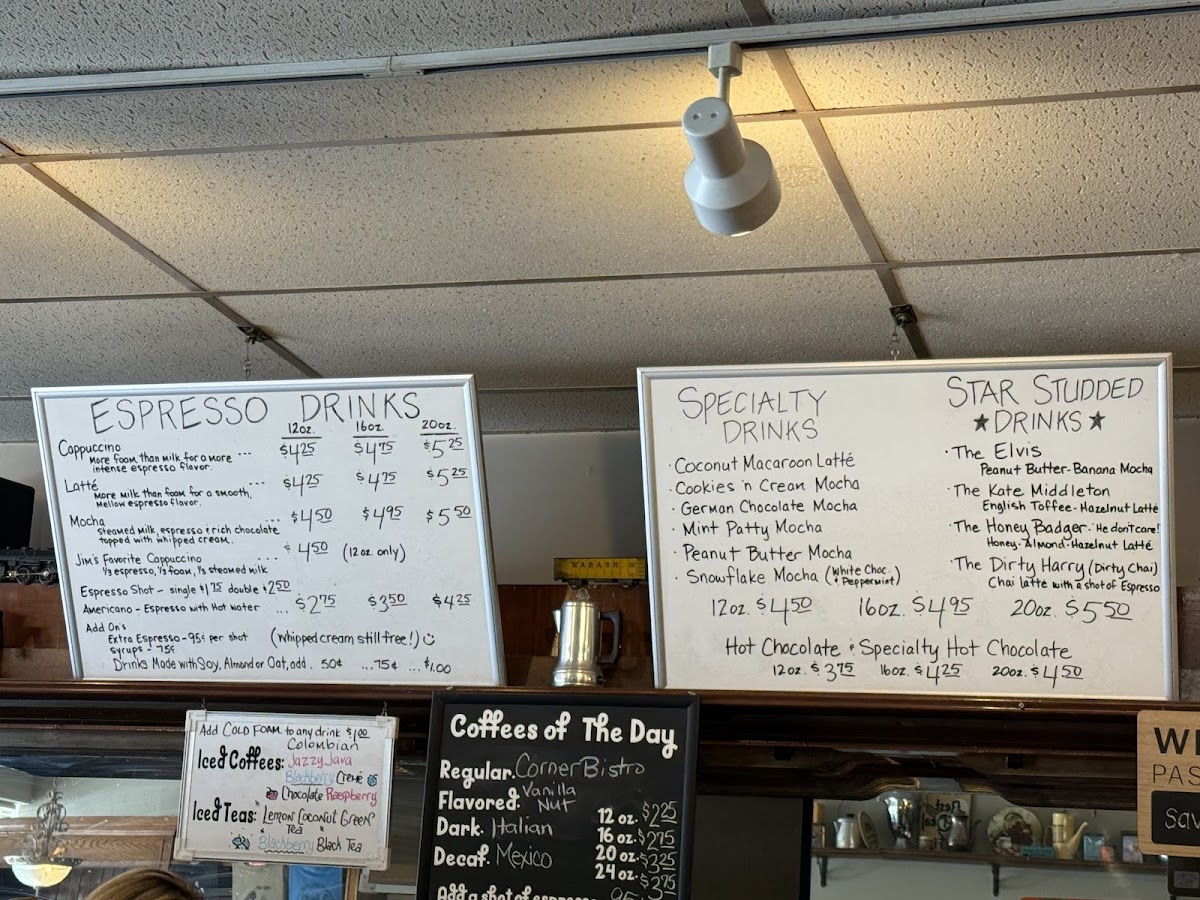 ESPRESSO DRINKS
12oz. 16oz 20oz.
Cappuccino ... $4.25 $4.75 $5.25
More foam than milk for a more
intense espresso flavor.
Latté ... $4.25 $4.75 $5.25
More milk than foam for a smooth,
mellow espresso flavor.
Mocha ... $4.50 $4.95 $5.50
Steamed milk, espresso & rich chocolate
topped with whipped cream.
Jim's Favorite Cappuccino .... $4.50 (12oz. only)
1/3 espresso, 1/3 foam, 1/3 steamed milk
Espresso Shot - single $1.75 double $2.50
Americano - Espresso with Hot water ... $2.75 $3.50 $4.25
Add On's
Extra Espresso - 95¢ per shot (whipped cream still free!)
syrups - 75¢
Drinks Made with Soy, Almond or Oat, add . 50¢ ...75¢ ... $1.00
SPECIALTY
DRINKS
· Coconut Macaroon Latté
· Cookies 'n Cream Mocha
· German Chocolate Mocha
· Mint Patty Mocha
· Peanut Butter Mocha
· Snowflake Mocha (White Choc. & Peppermint)
STAR STUDDED
★DRINKS★
· The Elvis
Peanut Butter-Banana Mocha
· The Kate Middleton
English Toffee-Hazelnut Latté
· The Honey Badger-'He don't care!
Honey-Almond-Hazelnut Latté
· The Dirty Harry (Dirty Chai)
Chai latte with a shot of Espresso
12oz. $4.50 16oz. $4.95 20oz. $5.50
Hot Chocolate & Specialty Hot Chocolate
12oz. $3.75 16oz $4.25 20oz. $4.50
WABASH
Add COLD FOAM to any drink $1.00
Iced Coffees: Colombian
Jazzy Java
Blackberry Creme
Chocolate Raspberry
Iced Teas: Lemon Coconut Green
Tea
Blackberry Black Tea
Coffees of The Day
Regular. Corner Bistro
Flavored. Vanilla
Nut
Dark. Italian
Decaf. Mexico
12 oz. $2.25
16 oz. $2.75
20 oz. $3.25
24 oz. $3.75
Add a shot of espresso 95¢
WI
PAS
Sav